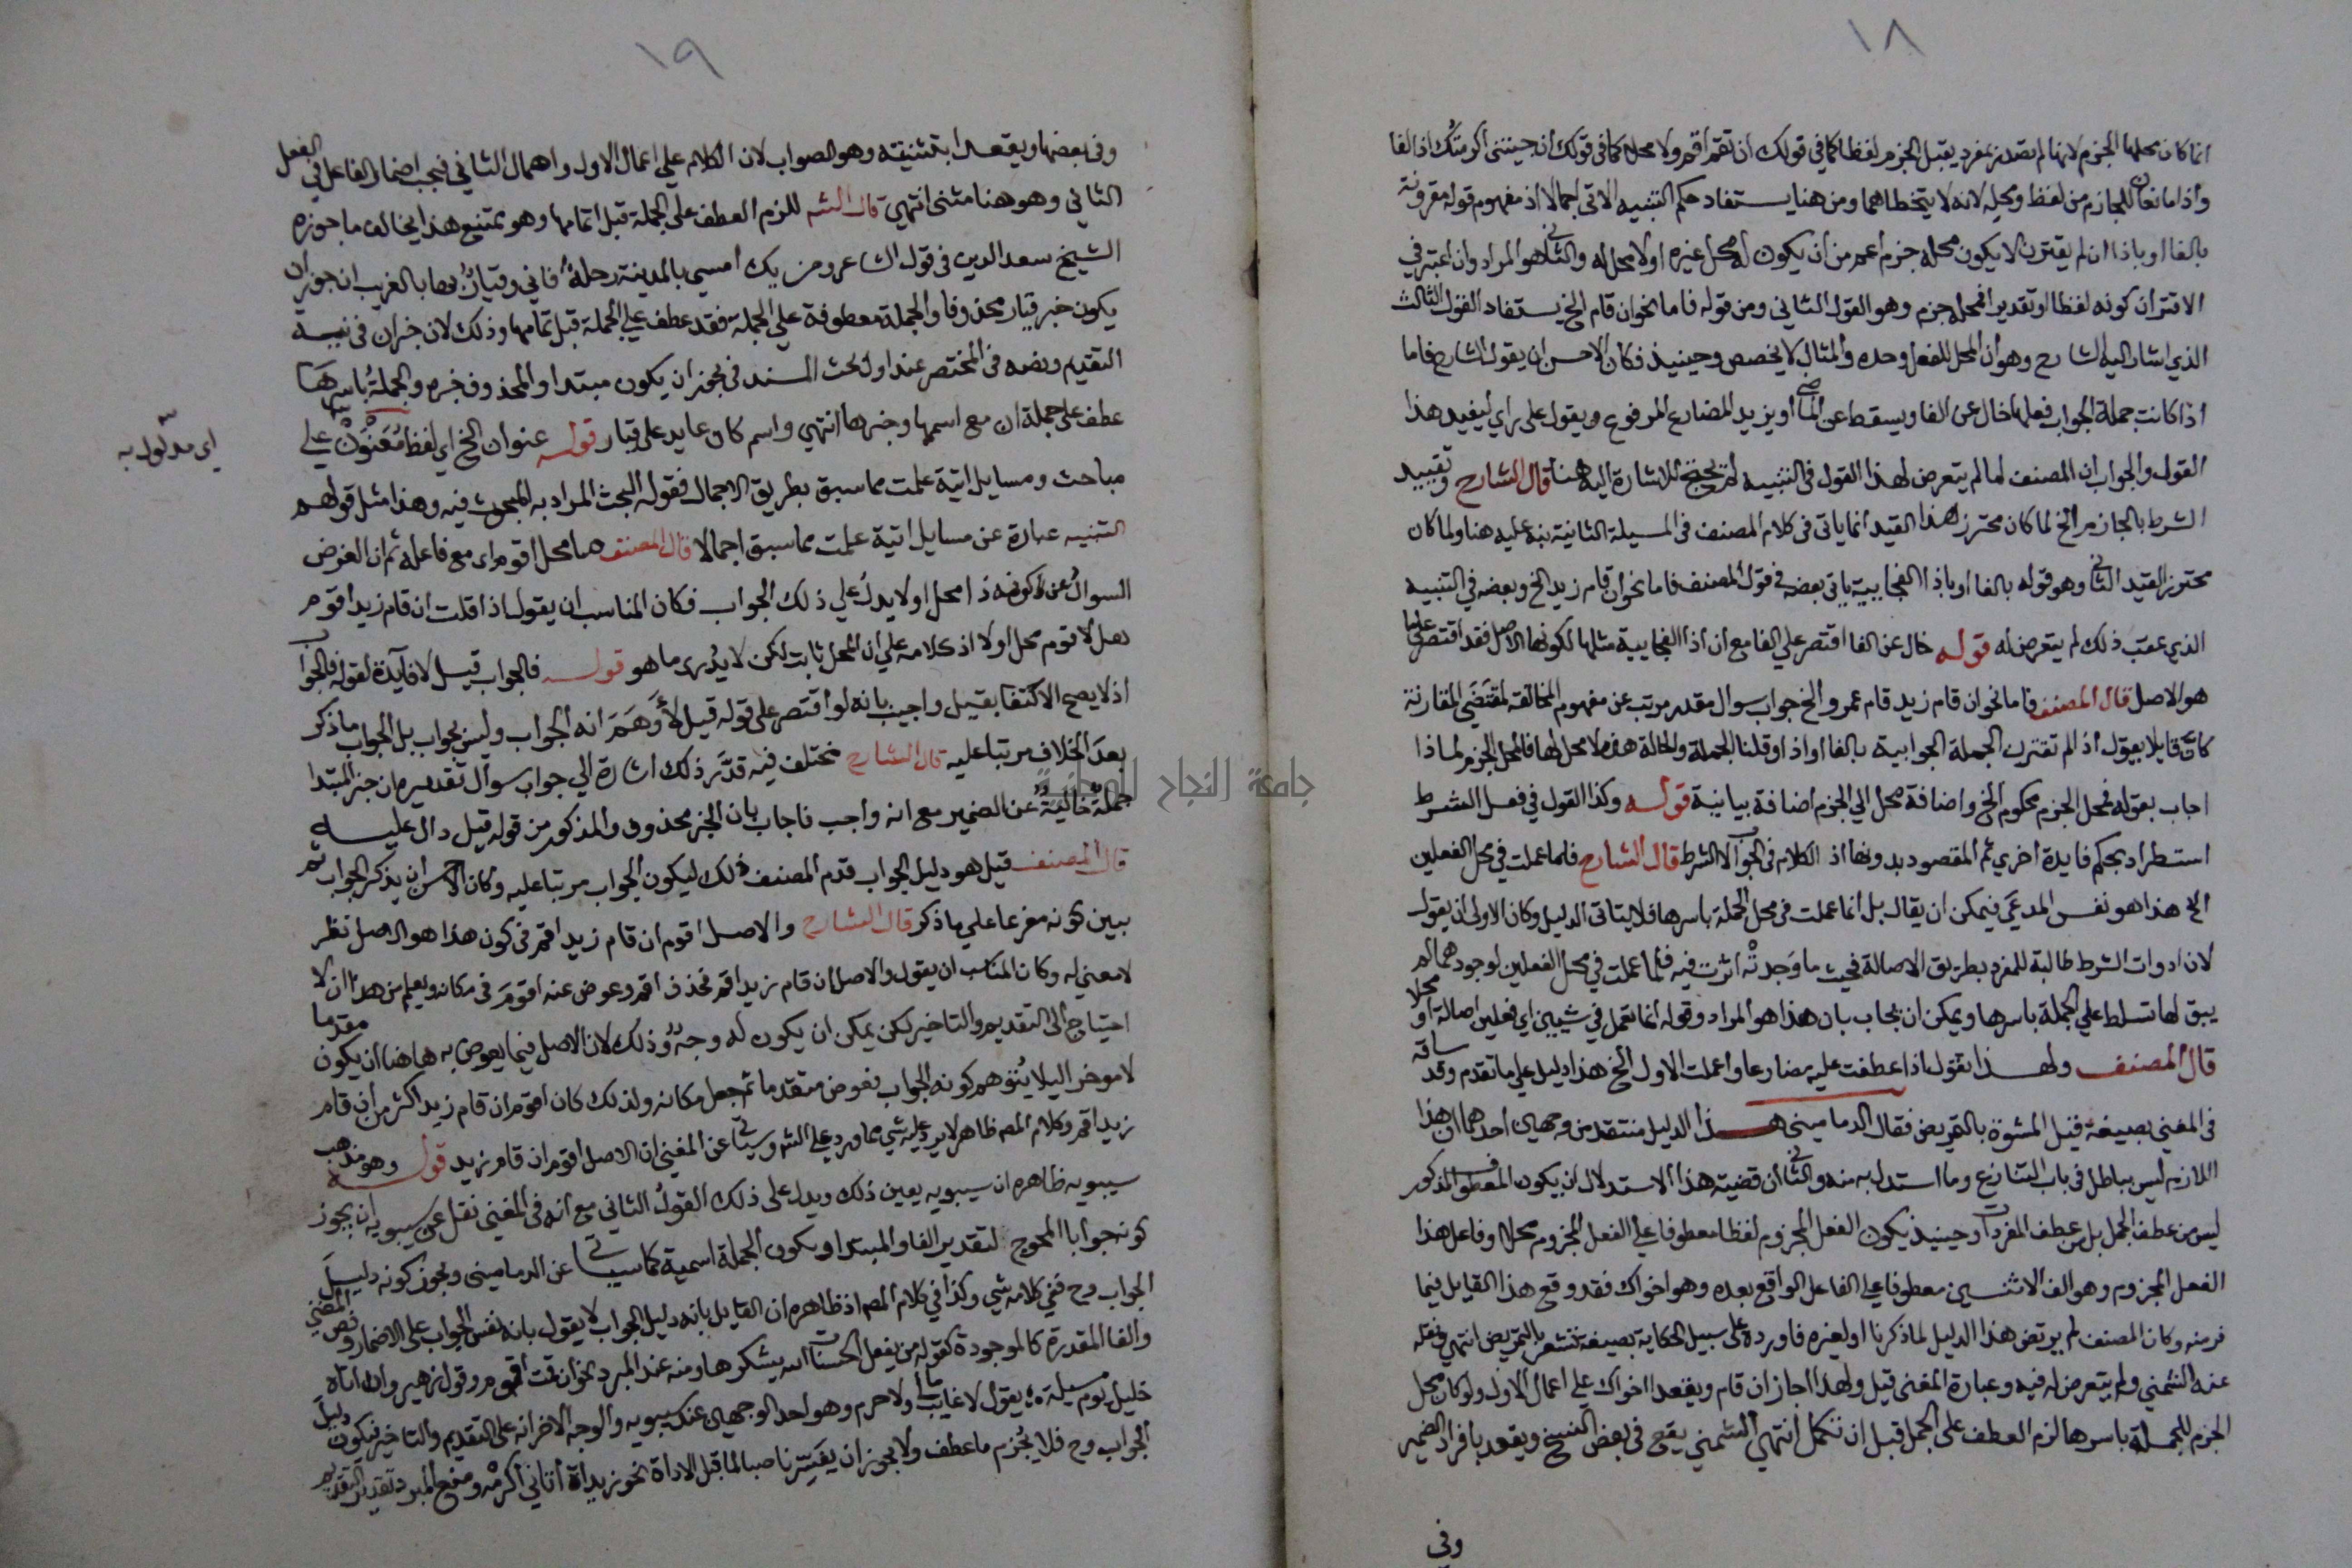 ١٨
انما كان محلها الجزم لانها لم تصدر بمفرد يقبل الجزم لفظا كما في قولك ان تقم اقم ولا محلا كما في قولك ان جيتني اكرمتك اذ الفا
واذا مانعان للجازم من لفظ ومحله لانه لا يتخطاهما ومن هنا يستفاد حكم التنبيه الاتي اجمالا اذ مفهوم قوله مقرونة
بالفا او باذا ان لم يقترن لا يكون محله جزم اعم من ان يكون له محل غيره او لا محل له والثاني هو المراد وان اعتبر في
الاقتران كونه لفظا او تقديرا فمحله جزم وهو القول الثاني ومن قوله فاما نحو ان قام الخ يستفاد القول الثالث
الذي اشار اليه الشارح وهو ان المحل للفعل وحده والمثال لا يخصص وحينيذ فكان الاحسن ان يقول الشارح فاما
اذا كانت جملة الجواب فعلها خال عن الفا ويسقط عن الماضي او يزيد المضارع المرفوع ويقول على راي ليفيد هذا
القول والجواب ان المصنف لما لم يتعرض لهذا القول في التنبيه لم يحتج للاشارة اليه هنا قال الشارح وتقييد
الشرط بالجازم الخ لما كان محترز هذا القيد انما ياتي في كلام المصنف في المسيلة الثانية نبه عليه هنا ولما كان
محترز القيد الثاني وهو قوله بالفا او باذا الفجاييية ياتي بعضه في قول المصنف فاما نحو ان قام زيد الخ وبعضه في التنبيه
الذي عقب ذلك لم يتعرض له قوله خال عن الفا اقتصر على الفا مع ان اذا الفجايية مثلها لكونها الاصل فقد اقتصر على ما
هو الاصل قال المصنف فاما نحو ان قام زيد قام عمرو الخ جواب سوال مقدر مرتب عن مفهوم المخالفة لمقتضى المقارنة
كان قايلا يقول اذ لم تقترن الجملة الجوابية بالفا او اذا وقلنا الجملة والحالة هذه لا محل لها فالمحل الجزم لماذا
اجاب بقوله فمحل الجزم محكوم الخ واضافة محل الى الجزم اضافة بيانية قوله وكذا القول في فعل الشرط
استطراد بحكم فايدة اخرى ثم المقصود بدونها اذ الكلام في الجواب لا الشرط قال الشارح فلما عملت في محل الفعلين
الخ هذا هو نفس المدعى فيمكن ان يقال بل انما عملت في محل الجملة باسرها فلا يتاتى الدليل وكان الاولى ان يقول
لان ادوات الشرط طالبة للمفرد بطريق الاصالة فحيث ما وجدته اثرت فيه فلما عملت في محل الفعلين لوجودهما لم
يبق لها تسلط على الجملة باسرها ويمكن ان يجاب بان هذا هو المراد وقوله انما تعمل في شييين اي فعلين اصالة او محلا
قال المصنف ولهذا تقول اذا عطفت عليه مضارعا واعملت الاول الخ هذا دليل على ما تقدم وقد ساقه
في المغني بصيغة قيل المشوة بالتمريض فقال الدماميني هذا الدليل منتقد من وجهين احدهما ان هذا
اللازم ليس بباطل في باب التنازع وما استدل به منه والثاني ان قضية هذا الاستدلال ان يكون المعطوف المذكور
ليس من عطف الجمل بل من عطف المفردات وحينيذ يكون الفعل المجزوم لفظا معطوفا على الفعل المجزوم محلا وفاعل هذا
الفعل المجزوم وهو الف الاثنين معطوفا على الفاعل الواقع بعده وهو اخواك فقد وقع هذا القايل فيما
فر منه وكان المصنف لم يرتض هذا الدليل لما ذكرنا او لغيره فاورده على سبيل الحكاية بصيغة تشعر بالتمريض انتهى ونقله
عنه الشمني ولم يتعرض له فيه وعبارة المغني قيل ولهذا اجاز ان قام ويقعدا اخواك على اعمال الاول ولو كان محل
الجزم للجملة باسرها لزم العطف على الجمل قبل ان تكمل انتهى الشمني يقع في بعض النسخ ويقعد بافراد الضمير
وفي
١٩
وفي بعضها ويقعدا بتثنيته وهو الصواب لان الكلام على اعمال الاول واهمال الثاني فيجب اضمار الفاعل في الفعل
الثاني وهو هنا مثنى انتهى قال الشه للزم العطف على الجملة قبل اتمامها وهو ممتنع هذا يخالف ما جوزه
الشيخ سعد الدين في قول الشاعر ومن يك امسى بالمدينة رحله فاني وقيار بها لغريب ان جوز ان
يكون خبر قيار محذوفا والجملة معطوفة على الجملة فقد عطف على الجملة قبل تمامها وذلك لان خبر ان في نية
التقديم ونصه في المختصر عند اول بحث المسند فيجوز ان يكون مبتدا والمحذوف خبره والجملة باسرها
عطف على جملة ان مع اسمها وخبرها انتهى واسم كان عايد على قيار قوله عنوان الخ اي لفظ معنون به على
اي مدلول به
مباحث ومسايل اتية علمت مما سبق بطريق الاجمال فقوله البحث المراد به المبحوث فيه وهذا مثل قولهم
التنبيه عبارة عن مسايل اتية علمت مما سبق اجمالا قال المصنف ما محل اقوم اي مع فاعله ثم ان الغرض
السوال عن كونه ذا محل او لا يدل على ذلك الجواب فكان المناسب ان يقول اذا قلت ان قام زيد اقوم
هل لاقوم محل او لا اذ كلامه على ان المحل ثابت لكن لا يدرى ما هو قوله فالجواب قيل لا فايدة لقوله فالجواب
اذ لا يصح الاكتفا بقيل واجيب بانه لو اقتصر على قوله قيل لاوهم انه الجواب وليس بجواب بل الجواب ما ذكر
بعد الخلاف مرتبا عليه قال الشارح مختلف فيه قدر ذلك اشارة الى جواب سوال تقديره ان خبر المبتدا
جملة خالية عن الضمير مع انه واجب فاجاب بان الخبر محذوف والمذكور من قوله قيل دال عليه
قال المصنف قيل هو دليل الجواب قدم المصنف ذلك ليكون الجواب مرتبا عليه وكان الاحسن ان يذكر الجواب ثم
يبين كونه مفرعا على ما ذكر قال الشارح والاصل اقوم ان قام زيد اقم في كون هذا هو الاصل نظر
لا معنى له وكان المناسب ان يقول والاصل ان قام زيد اقم فحذف اقم وعوض عنه اقوم في مكانه ويعلم من هذا ان لا
احتياج الى التقديم والتاخير لكن يمكن ان يكون له وجه وذلك لان الاصل فيما يعوض به هاهنا ان يكون مقدما
لا موخرا ليلا يتوهم كونه الجواب فعوض متقدما ثم جعل مكانه ولذلك كان اقوم ان قام زيد اكثر من ان قام
زيد اقم وكلام المصه ظاهر لا يرد عليه شي مما ورد على الشه وسياتي عن المغني ان الاصل اقوم ان قام زيد قوله وهو مذهب
سيبويه ظاهره ان سيبويه يعين ذلك ويدل على ذلك القول الثاني مع انه في المغني نقل عن سيبويه ان يجوز
كونه جوابا المحوج لتقدير الفا والمبتدا ويكون الجملة اسمية كما سياتي عن الدماميني ويجوز كونه دليل
الجواب وح ففي كلامه شي وكذا في كلام المصه اذ ظاهره ان القايل بانه دليل الجواب لا يقول بانه نفس الجواب على الاضمار ونص المغني
والفا المقدرة كالموجودة كقوله من يفعل الحسنات الله يشكرها ومنه عند المبرد نحو ان قمت اقوم وقول زهير وان اتاه
خليل يوم مسيلة ؛ يقول لا غايب مالي ولا حرم وهو احد الوجهين عند سيبويه والوجه الاخر انه على التقديم والتاخير فيكون دليل
الجواب وح فلا يجزم ما عطف ولا يجوز ان يفسر ناصبا لما قبل الاداة نحو زيدا ان اتاني اكرمه ومنع المبرد تقدير التقديم
جامعة النجاح الوطنية